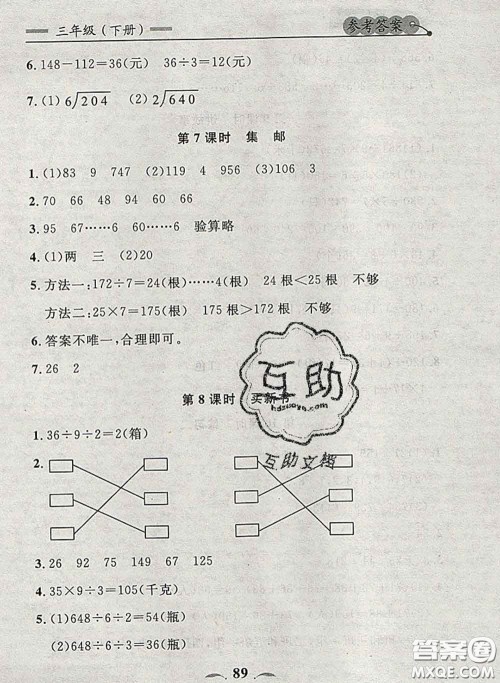 三年级(下册)
参考答案
6. 148-112=36(元) 36÷3=12(元)
7. (1)6)204 (2)2)640
第 7 课时 集 邮
1. (1)83 9 747 (2)119 4 956 (3)106 3
2. 70 66 48 94 60 65
3. 95 67……6 91 60……6 验算略
4. (1)两 三 (2)20
5. 方法一:172÷7=24(根)……4(根) 24 根<25 根 不够
方法二:25×7=175(根) 175 根>172 根 不够
6. 答案不唯一,合理即可。
7. 26 2
第 8 课时 买新书
互助
hdzuoye.com
互助文档
1. 36÷9÷2=2(箱)
2.
3. 26 92 75 149 67 125
4. 35×9÷3=105(千克)
5. (1)648÷6÷2=54(瓶)
(2)648÷6÷3=36(瓶)
89
答案圈
MXQE.COM